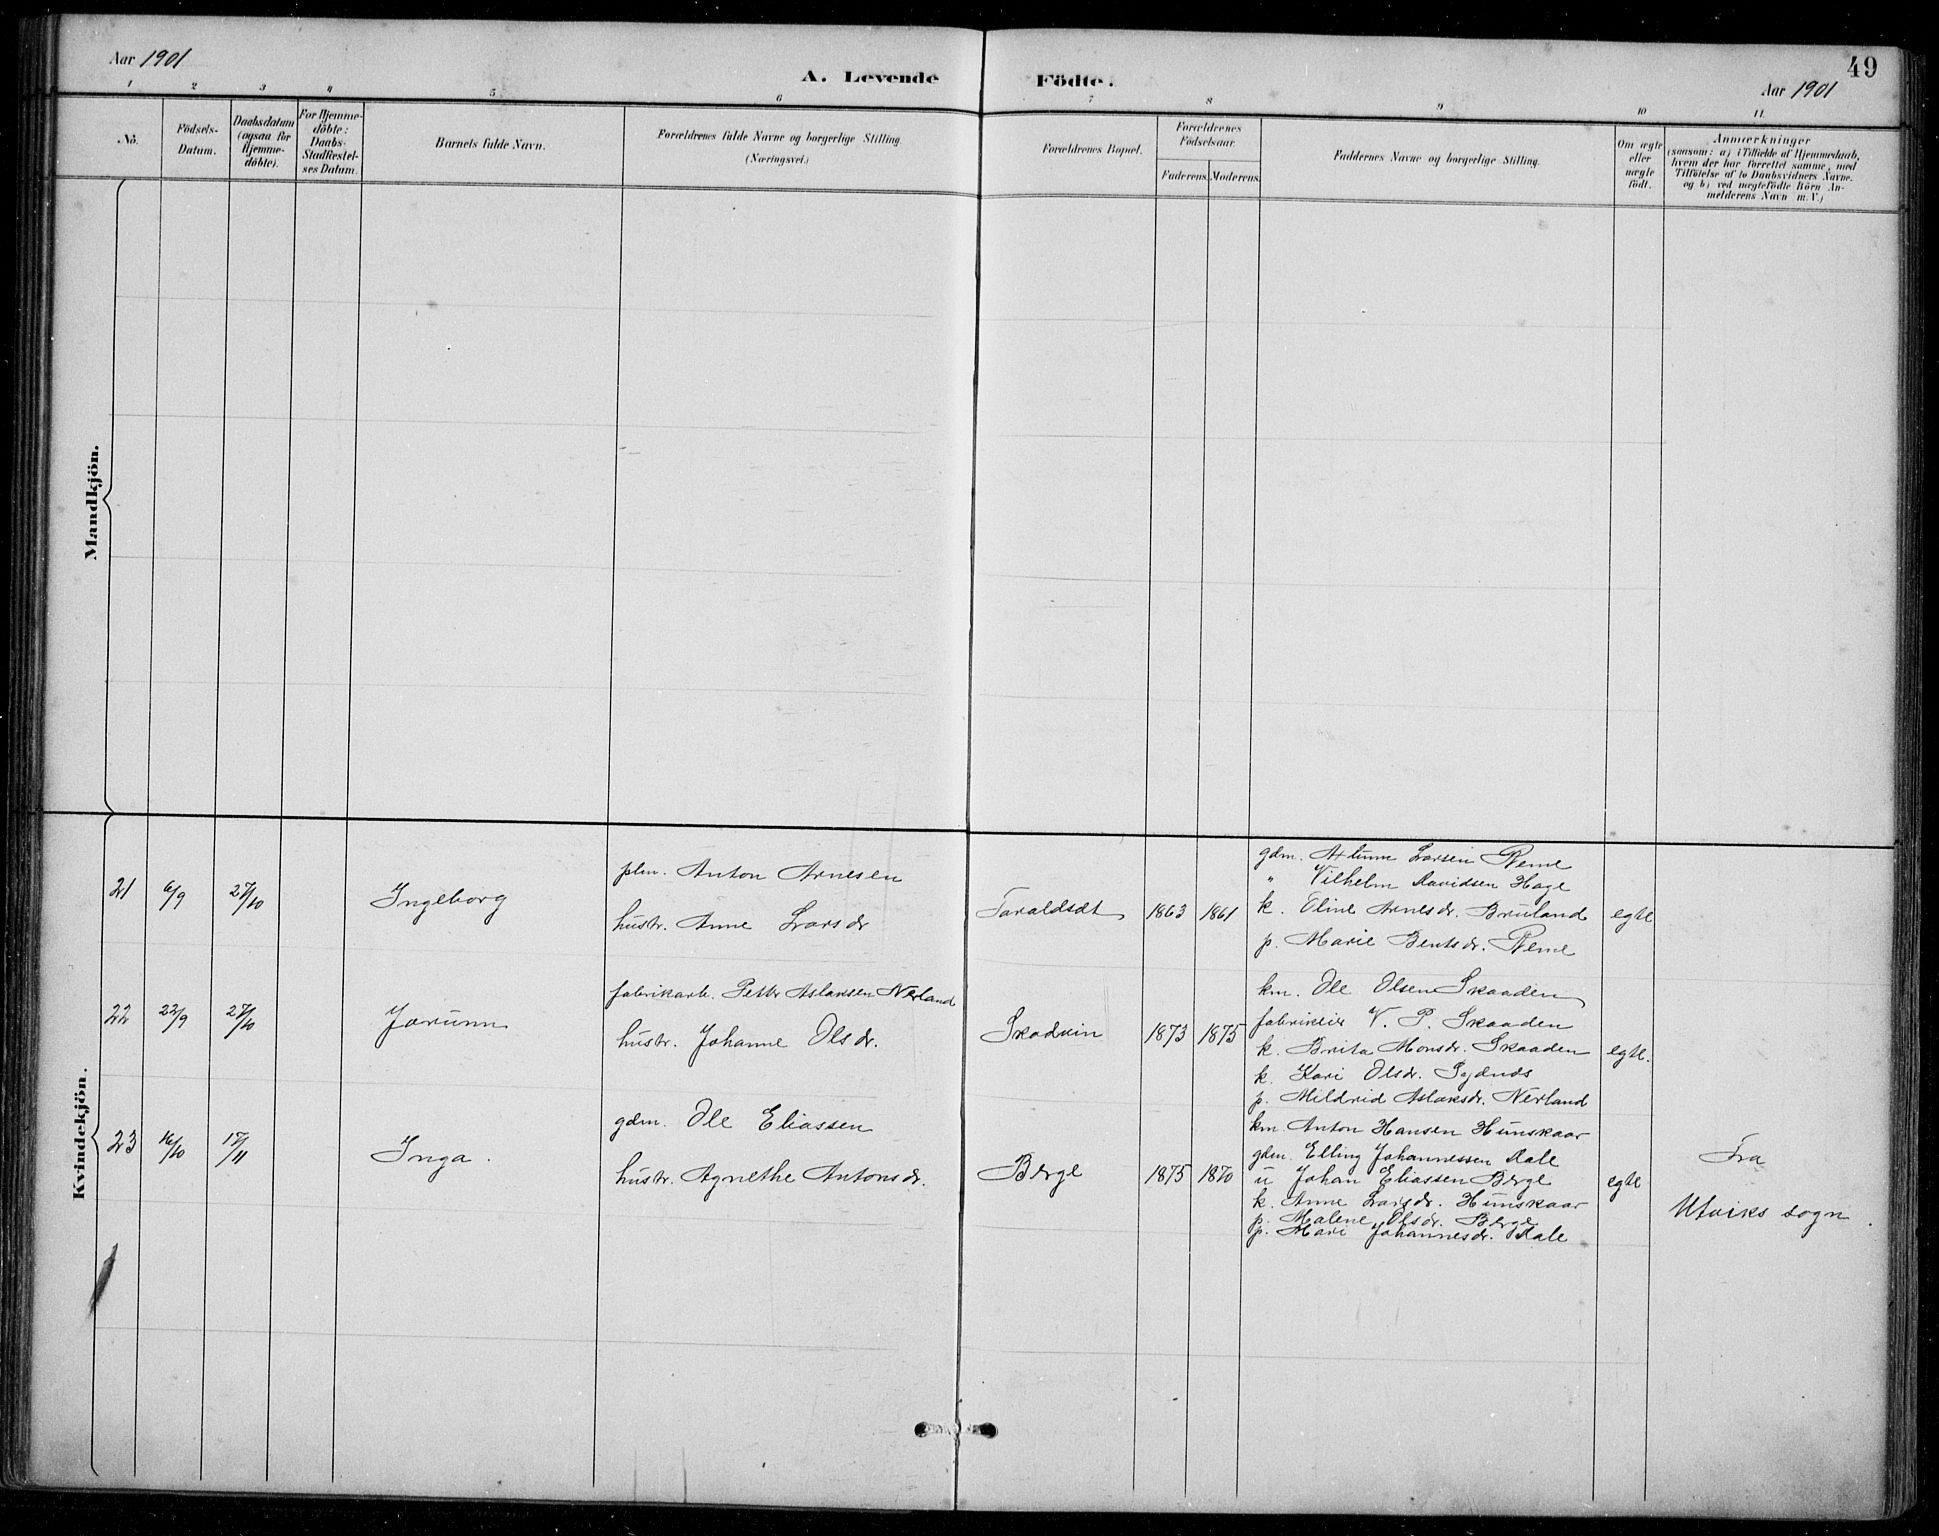 Aar 1901
A. Levende Födte.
49
Aar 1901
1 2 3 4 5 6 7 8 9 10 11.
No.
Födsels-
Datum.
Daabsdatum
(ogsaa for
Hjemme-
döbte).
For Hjemme-
döbte:
Daabs-
Stadfæstel-
ses Datum.
Barnets fulde Navn.
Forældrenes fulde Navne og borgerlige Stilling
(Næringsvei.)
Forældrenes Bopæl.
Forældrenes
Födselsaar.
Faderens. Moderens.
Faddernes Navne og borgerlige Stilling.
Om ægte
eller
uægte
födt.
Anmærkninger
(saasom: a) i Tilfælde af Hjemmedaab,
hvem der har forrettet samme, med
Tilföielse af to Daabsvidners Navne.
og b) ved uægtefödte Börn An-
melderens Navn m. V.)
Mandkjön.
Kvindekjön.
21 6/9 27/10 Ingeborg
plm. Anton Arnesen
hustr. Anne Larsdr
Taraldsdt 1863 1861
gdm. Larsen Reme
" Vilhelm Davidsen Hage
k. Eline Arnesdr. Bruland
p. Marie Bentsdr. Reme
egte
22 22/9 27/10 Jorunn
fabrikarb. Petter Aslaksen Nerland
hustr. Johanne Olsdr.
Skadvin 1873 1875
km. Ole Olsen Skaaden
fabrikeier V. P. Skaaden
k. Brita Monsdr. Skaaden
k. Kari Olsdr. Sydnes
p. Mildrid Aslaksdr. Nerland
egte.
23 16/10 17/11 Inga.
gdm. Ole Eliassen
hustr. Agnethe Antonsdr.
Berge 1875 1870
km. Anton Hansen Hunskaar
gdm. Elling Johannessen Aale
u Johan Eliassen Berge
k. Anne Larsdr. Hunskaar
p. Malene Olsdr. Berge
p. Mari Johannesdr. Aale
egte
Fra
Utviks sogn.